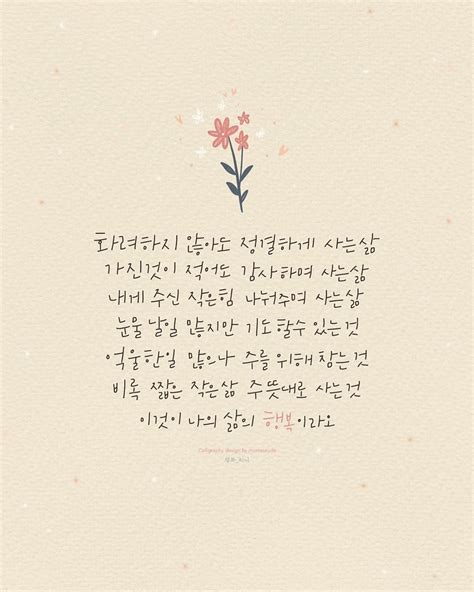 화려하지 않아도 정결하게 사는삶
가진것이 적어도 감사하며 사는삶
내게 주신 작은힘 나눠주며 사는삶
눈물 날일 많지만 기도 할수 있는것
억울한일 많으나 주를 위해 참는것
비록 짧은 작은삶 주뜻대로 사는것
이것이 나의 삶의 행복이라오
Calligraphy design by